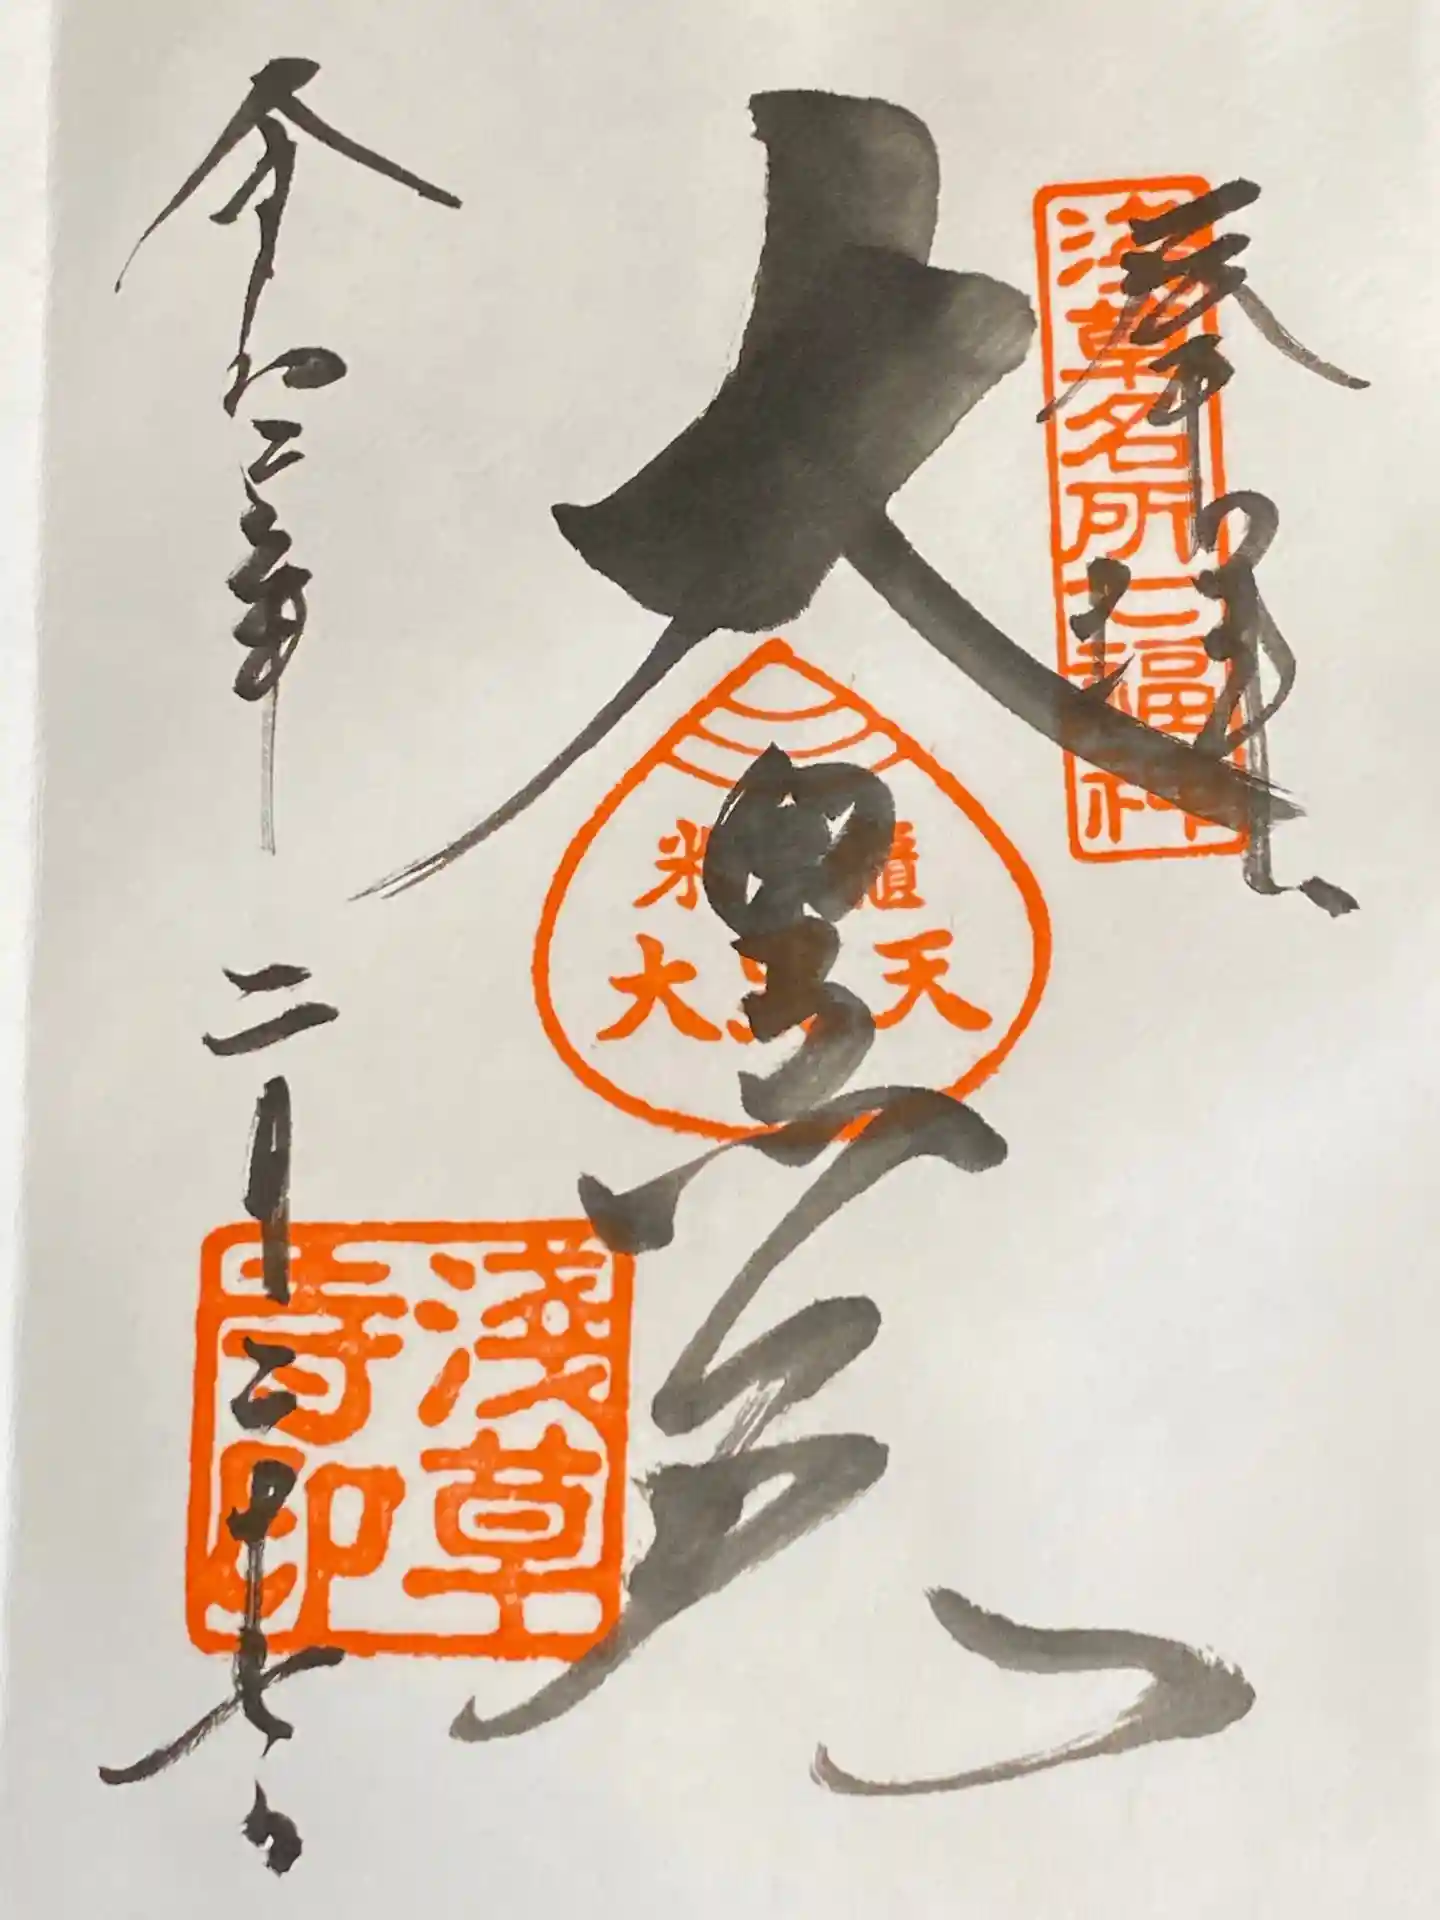 奉拝
浅草名所七福神
大黒天
米櫃
大黒天
令和二年二月二十七日
淺草
寺印